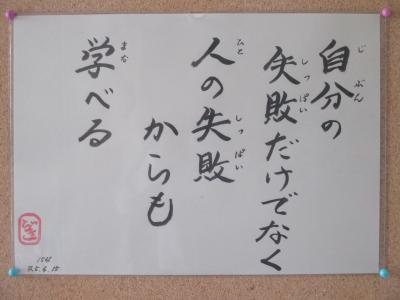 自分の
失敗だけでなく
人の失敗
からも
学べる
じ ぶん
しっぱい
ひと
しっ ぱい
まな